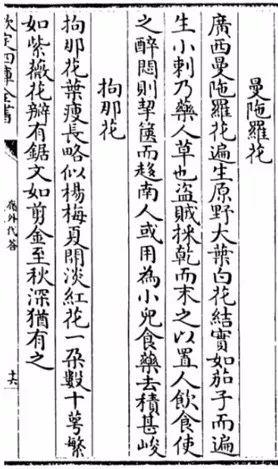 曼陁羅花
廣西曼陁羅花遍生原野大葉白花結實如茄子而遍
生小刺乃藥人草也盜賊採乾而末之以置人飲食使
之醉悶則挈篋而趍南人或用為小兒食藥去積甚峻
拘那花
拘那花葉瘦長略似楊梅夏開淡紅花一朶數十萼繁
如紫薇花瓣有鋸文如剪金至秋深猶有之
欽定四庫全書
嶺外代答